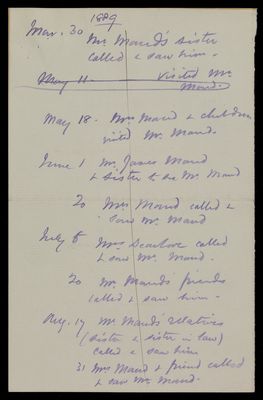 1889
Mar. 30 Mr Maud's sister
called & saw him.
May 11 - visited Mr
Maud.
May 18 - Mrs Maud & children
visited Mr. Maud.
June 1 Mr. James Maud
& sister to see Mr. Maud
20 Mrs Maud called &
saw Mr. Maud
July 6 Mrs called
& saw Mr. Maud.
20 Mr Maud's friends
called & saw him.
Aug. 17 Mr Maud's relatives
(sister & sister in law)
called & saw him
31 Mrs Maud & friend called
& saw Mr. Maud.